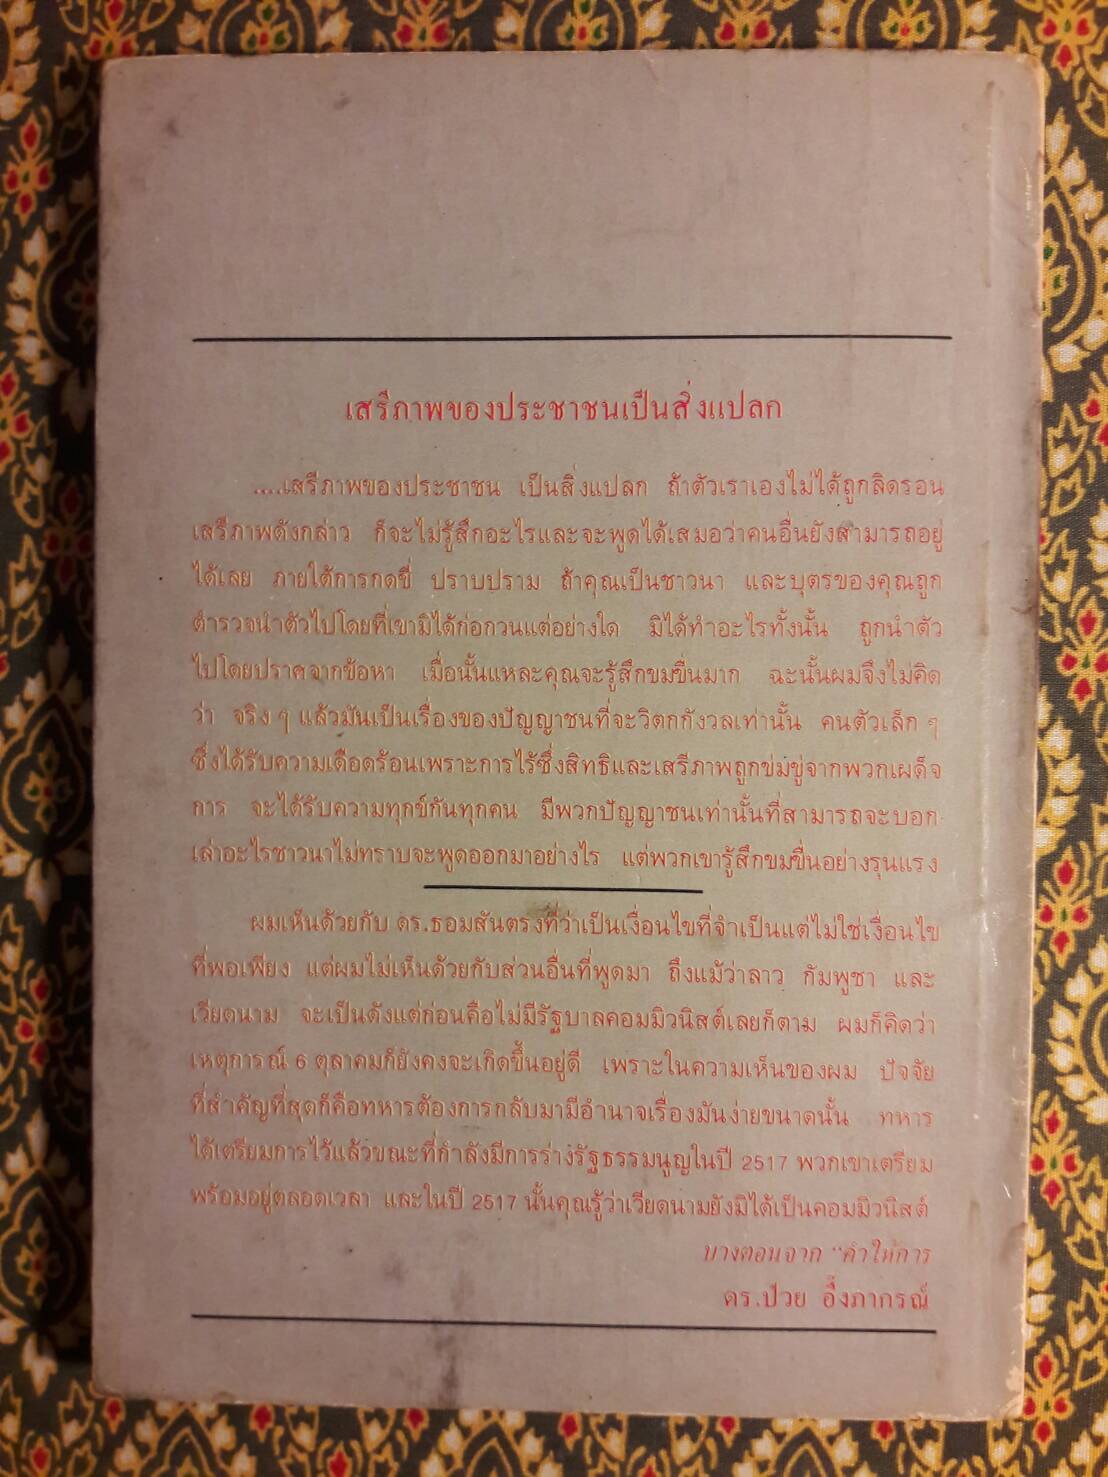 เสรีภาพของประชาชนเป็นสิ่งแปลก
....เสรีภาพของประชาชน เป็นสิ่งแปลก ถ้าตัวเราเองไม่ได้ถูกลิดรอน
เสรีภาพดังกล่าว ก็จะไม่รู้สึกอะไรและจะพูดได้เสมอว่าคนอื่นยังสามารถอยู่
ได้เลย ภายใต้การกดขี่ ปราบปราม ถ้าคุณเป็นชาวนา และบุตรของคุณถูก
ตำรวจนำตัวไปโดยที่เขามิได้ก่อกวนแต่อย่างใด มิได้ทำอะไรทั้งนั้น ถูกนำตัว
ไปโดยปราศจากข้อหา เมื่อนั้นแหละคุณจะรู้สึกขมขื่นมาก ฉะนั้นผมจึงไม่คิด
ว่า จริง ๆ แล้วมันเป็นเรื่องของปัญญาชนที่จะวิตกกังวลเท่านั้น คนตัวเล็ก ๆ
ซึ่งได้รับความเดือดร้อนเพราะการไร้ซึ่งสิทธิและเสรีภาพถูกข่มขู่จากพวกเผด็จ
การ จะได้รับความทุกข์กันทุกคน มีพวกปัญญาชนเท่านั้นที่สามารถจะบอก
เล่าอะไรชาวนาไม่ทราบจะพูดออกมาอย่างไร แต่พวกเขารู้สึกขมขื่นอย่างรุนแรง
ผมเห็นด้วยกับ ดร.ธอมสันตรงที่ว่าเป็นเงื่อนไขที่จำเป็นแต่ไม่ใช่เงื่อนไข
ที่พอเพียง แต่ผมไม่เห็นด้วยกับส่วนอื่นที่พูดมา ถึงแม้ว่าลาว กัมพูชา และ
เวียดนาม จะเป็นดังแต่ก่อนคือไม่มีรัฐบาลคอมมิวนิสต์เลยก็ตาม ผมก็คิดว่า
เหตุการณ์ 6 ตุลาคมก็ยังคงจะเกิดขึ้นอยู่ดี เพราะในความเห็นของผม ปัจจัย
ที่สำคัญที่สุดก็คือทหารต้องการกลับมามีอำนาจเรื่องมันง่ายขนาดนั้น ทหาร
ได้เตรียมการไว้แล้วขณะที่กำลังมีการร่างรัฐธรรมนูญในปี 2517 พวกเขาเตรียม
พร้อมอยู่ตลอดเวลา และในปี 2517 นั้นคุณรู้ว่าเวียดนามยังมิได้เป็นคอมมิวนิสต์
บางตอนจาก "คำให้การ
ดร.ป๋วย อึ๊งภากรณ์